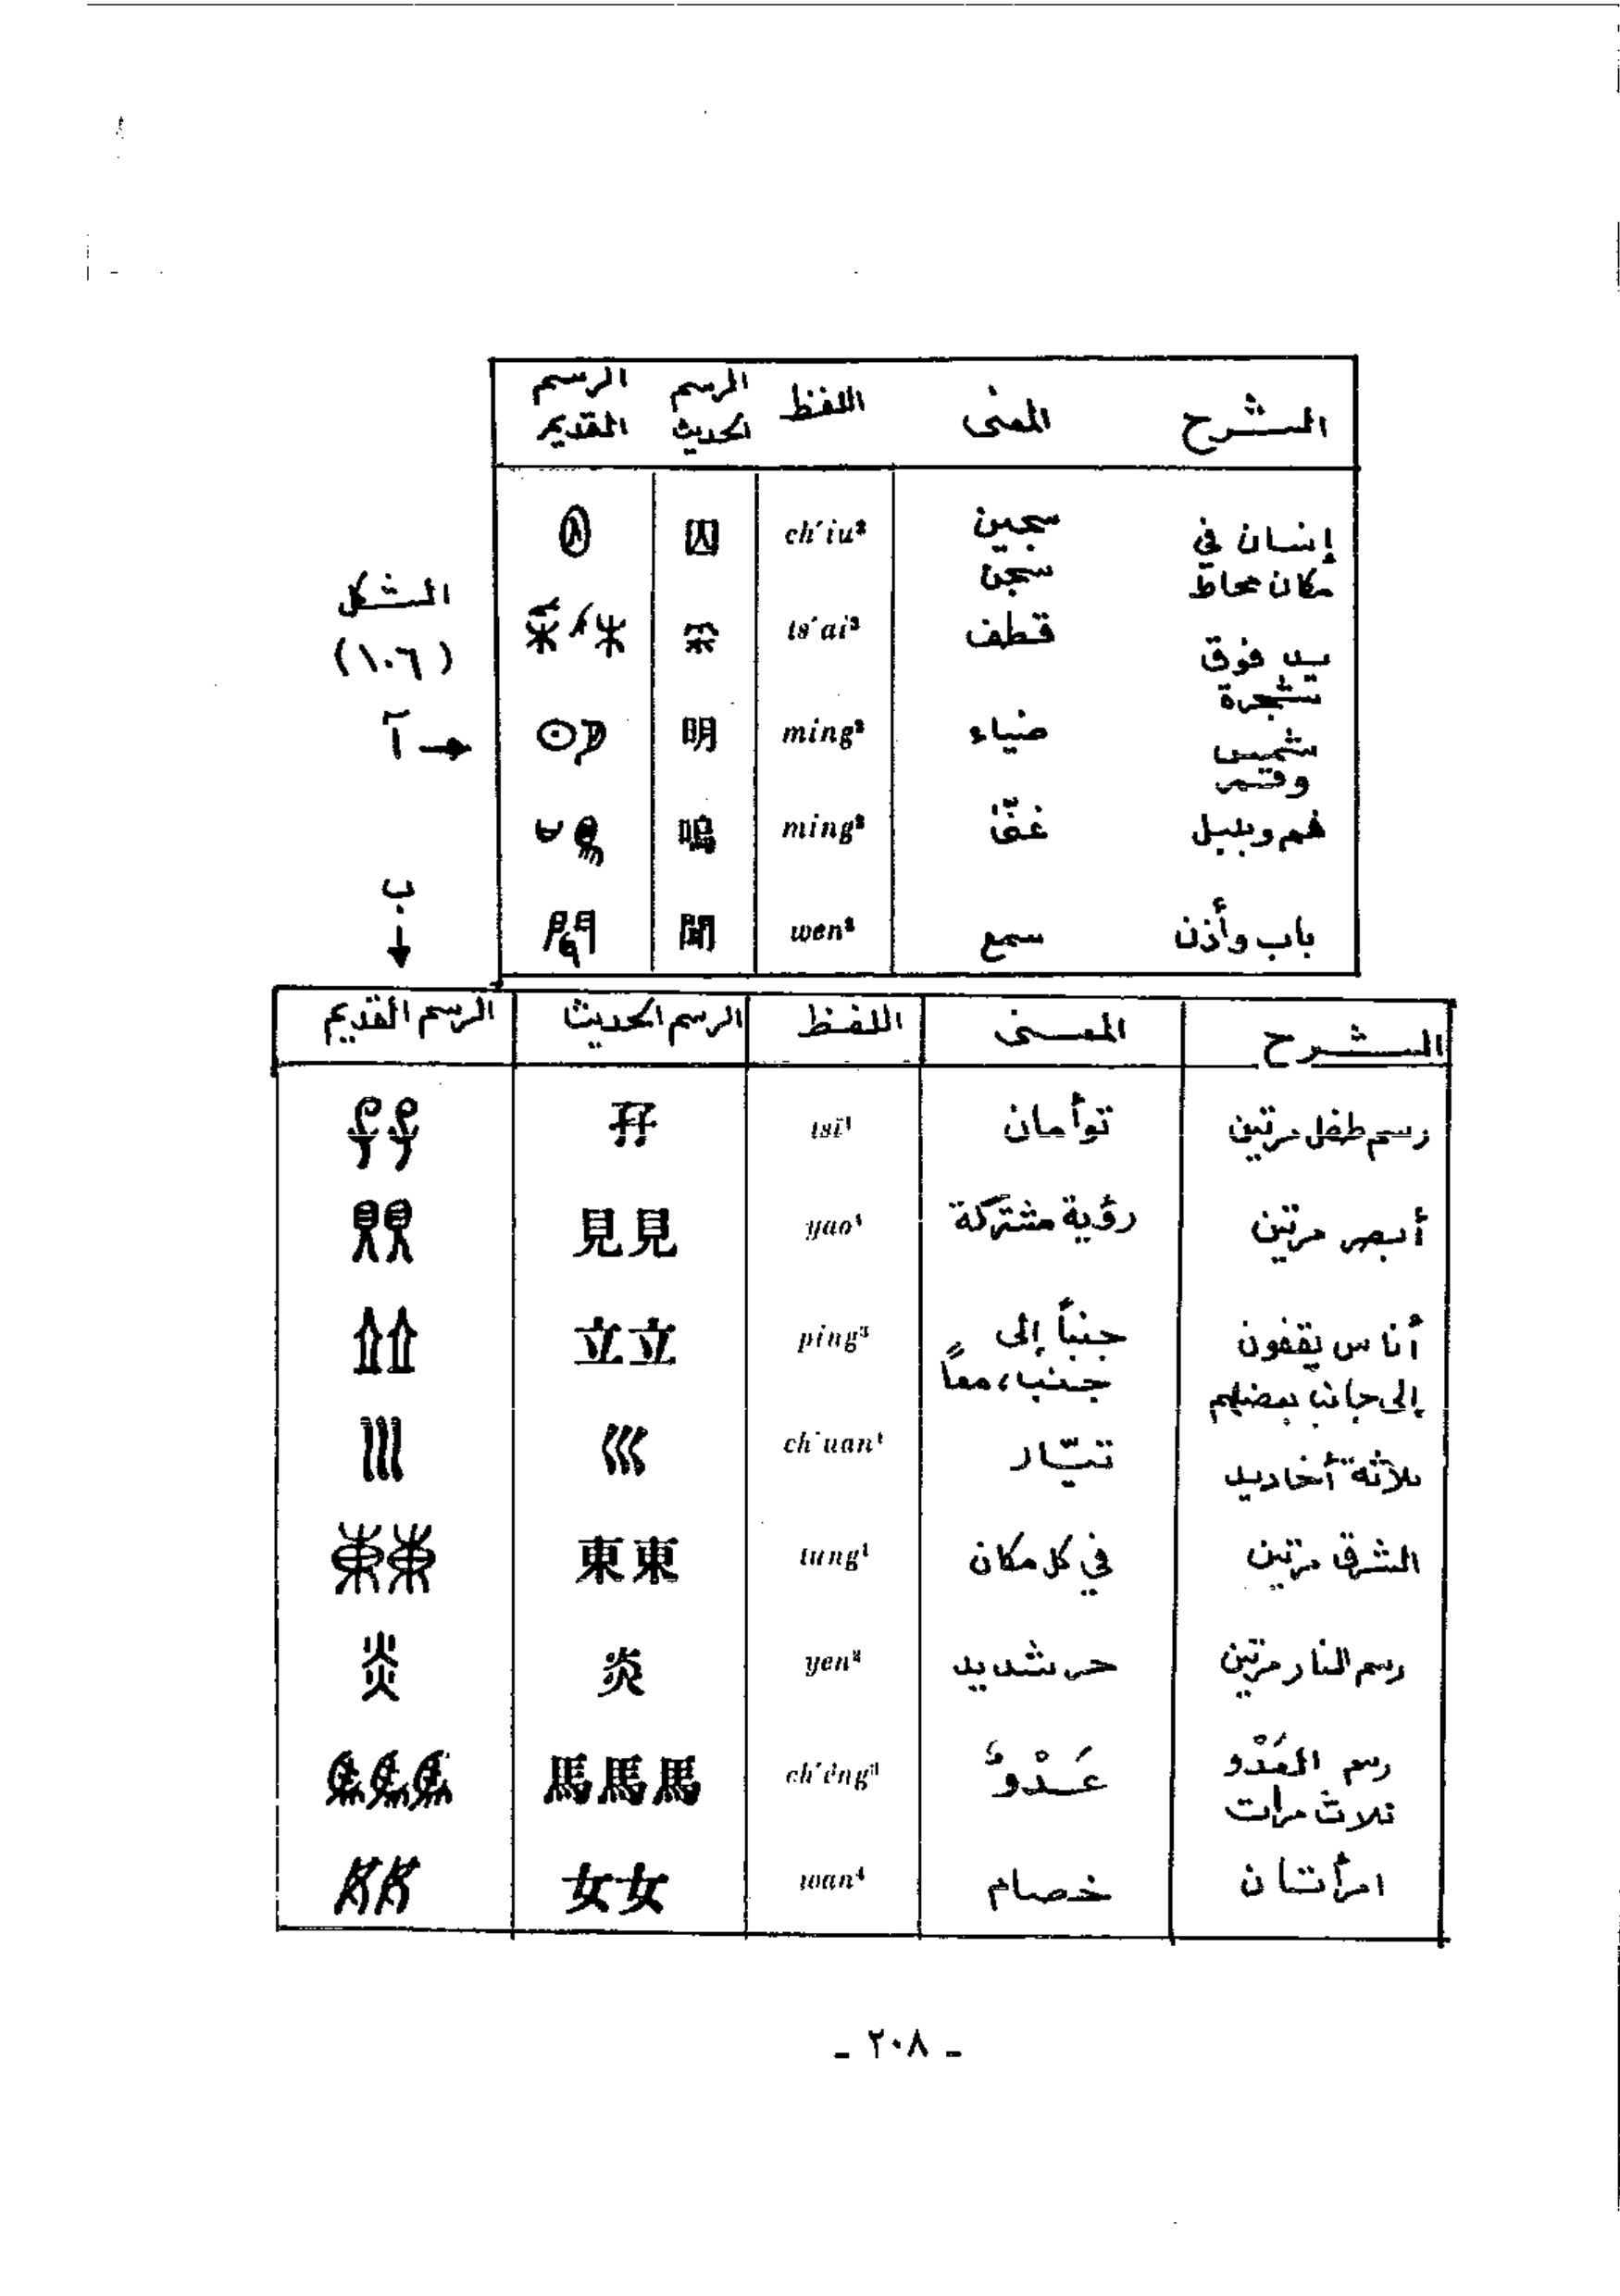 الشرح المعنى اللفظ الرسم الحديث الرسم القديم
إنسان في مكان محاط سجين سجن ch'iu² 囚
يد فوق شجرة قطف ts'ai³ 采
شمس وقمر ضياء ming² 明
فم وبلبل غنّى ming² 鳴
باب وأذن سمع wen² 聞
الشكل
(١٠٦)
آ →
ب
↓
الشرح المعنى اللفظ الرسم الحديث الرسم القديم
رسم طفل مرتين توأمان tsï¹ 孖
أبصر مرتين رؤية مشتركة yao⁴ 見見
أناس يقفون إلى جانب بعضهم جنباً إلى جنب، معاً ping³ 立立
ثلاثة أخاديد تيّار ch'uan¹ 巛
الشرق مرتين في كل مكان tung¹ 東東
رسم النار مرتين حر شديد yen² 炎
رسم العَدْو ثلاث مرات عَدْوٌ 馬馬馬
امرأتان خصام wan⁴ 女女
- ٢٠٨ -